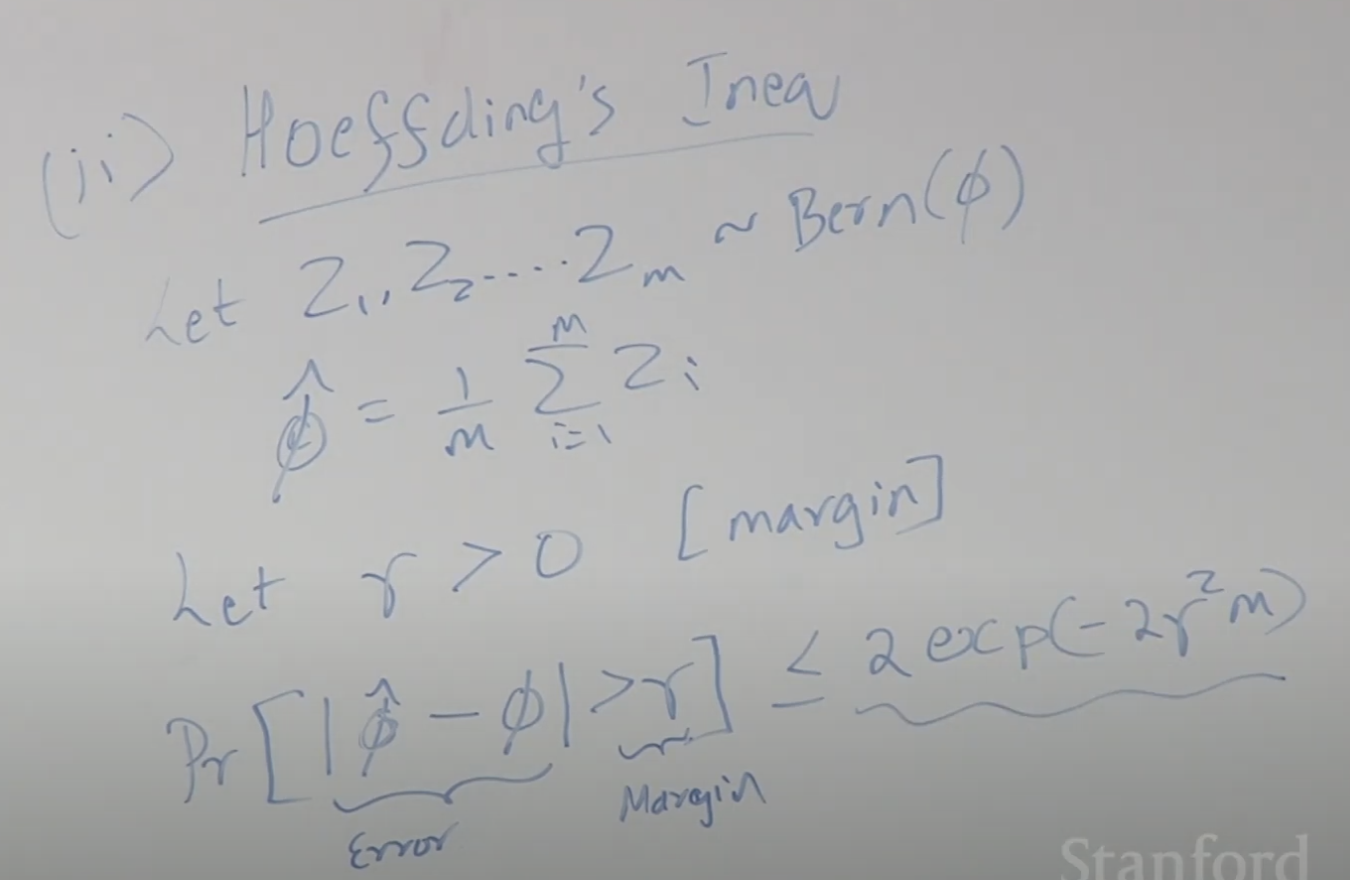 (ii) Hoeffding's Ineq
Let Z₁, Z₂ .... Zₘ ~ Bern(ϕ)
ϕ̂ = 1/m ∑ᵢ₌₁ᵐ Zᵢ
Let γ > 0 [margin]
Pr[|ϕ̂ - ϕ| > γ] ≤ 2 exp(-2γ²m)
Error Margin
Stanford